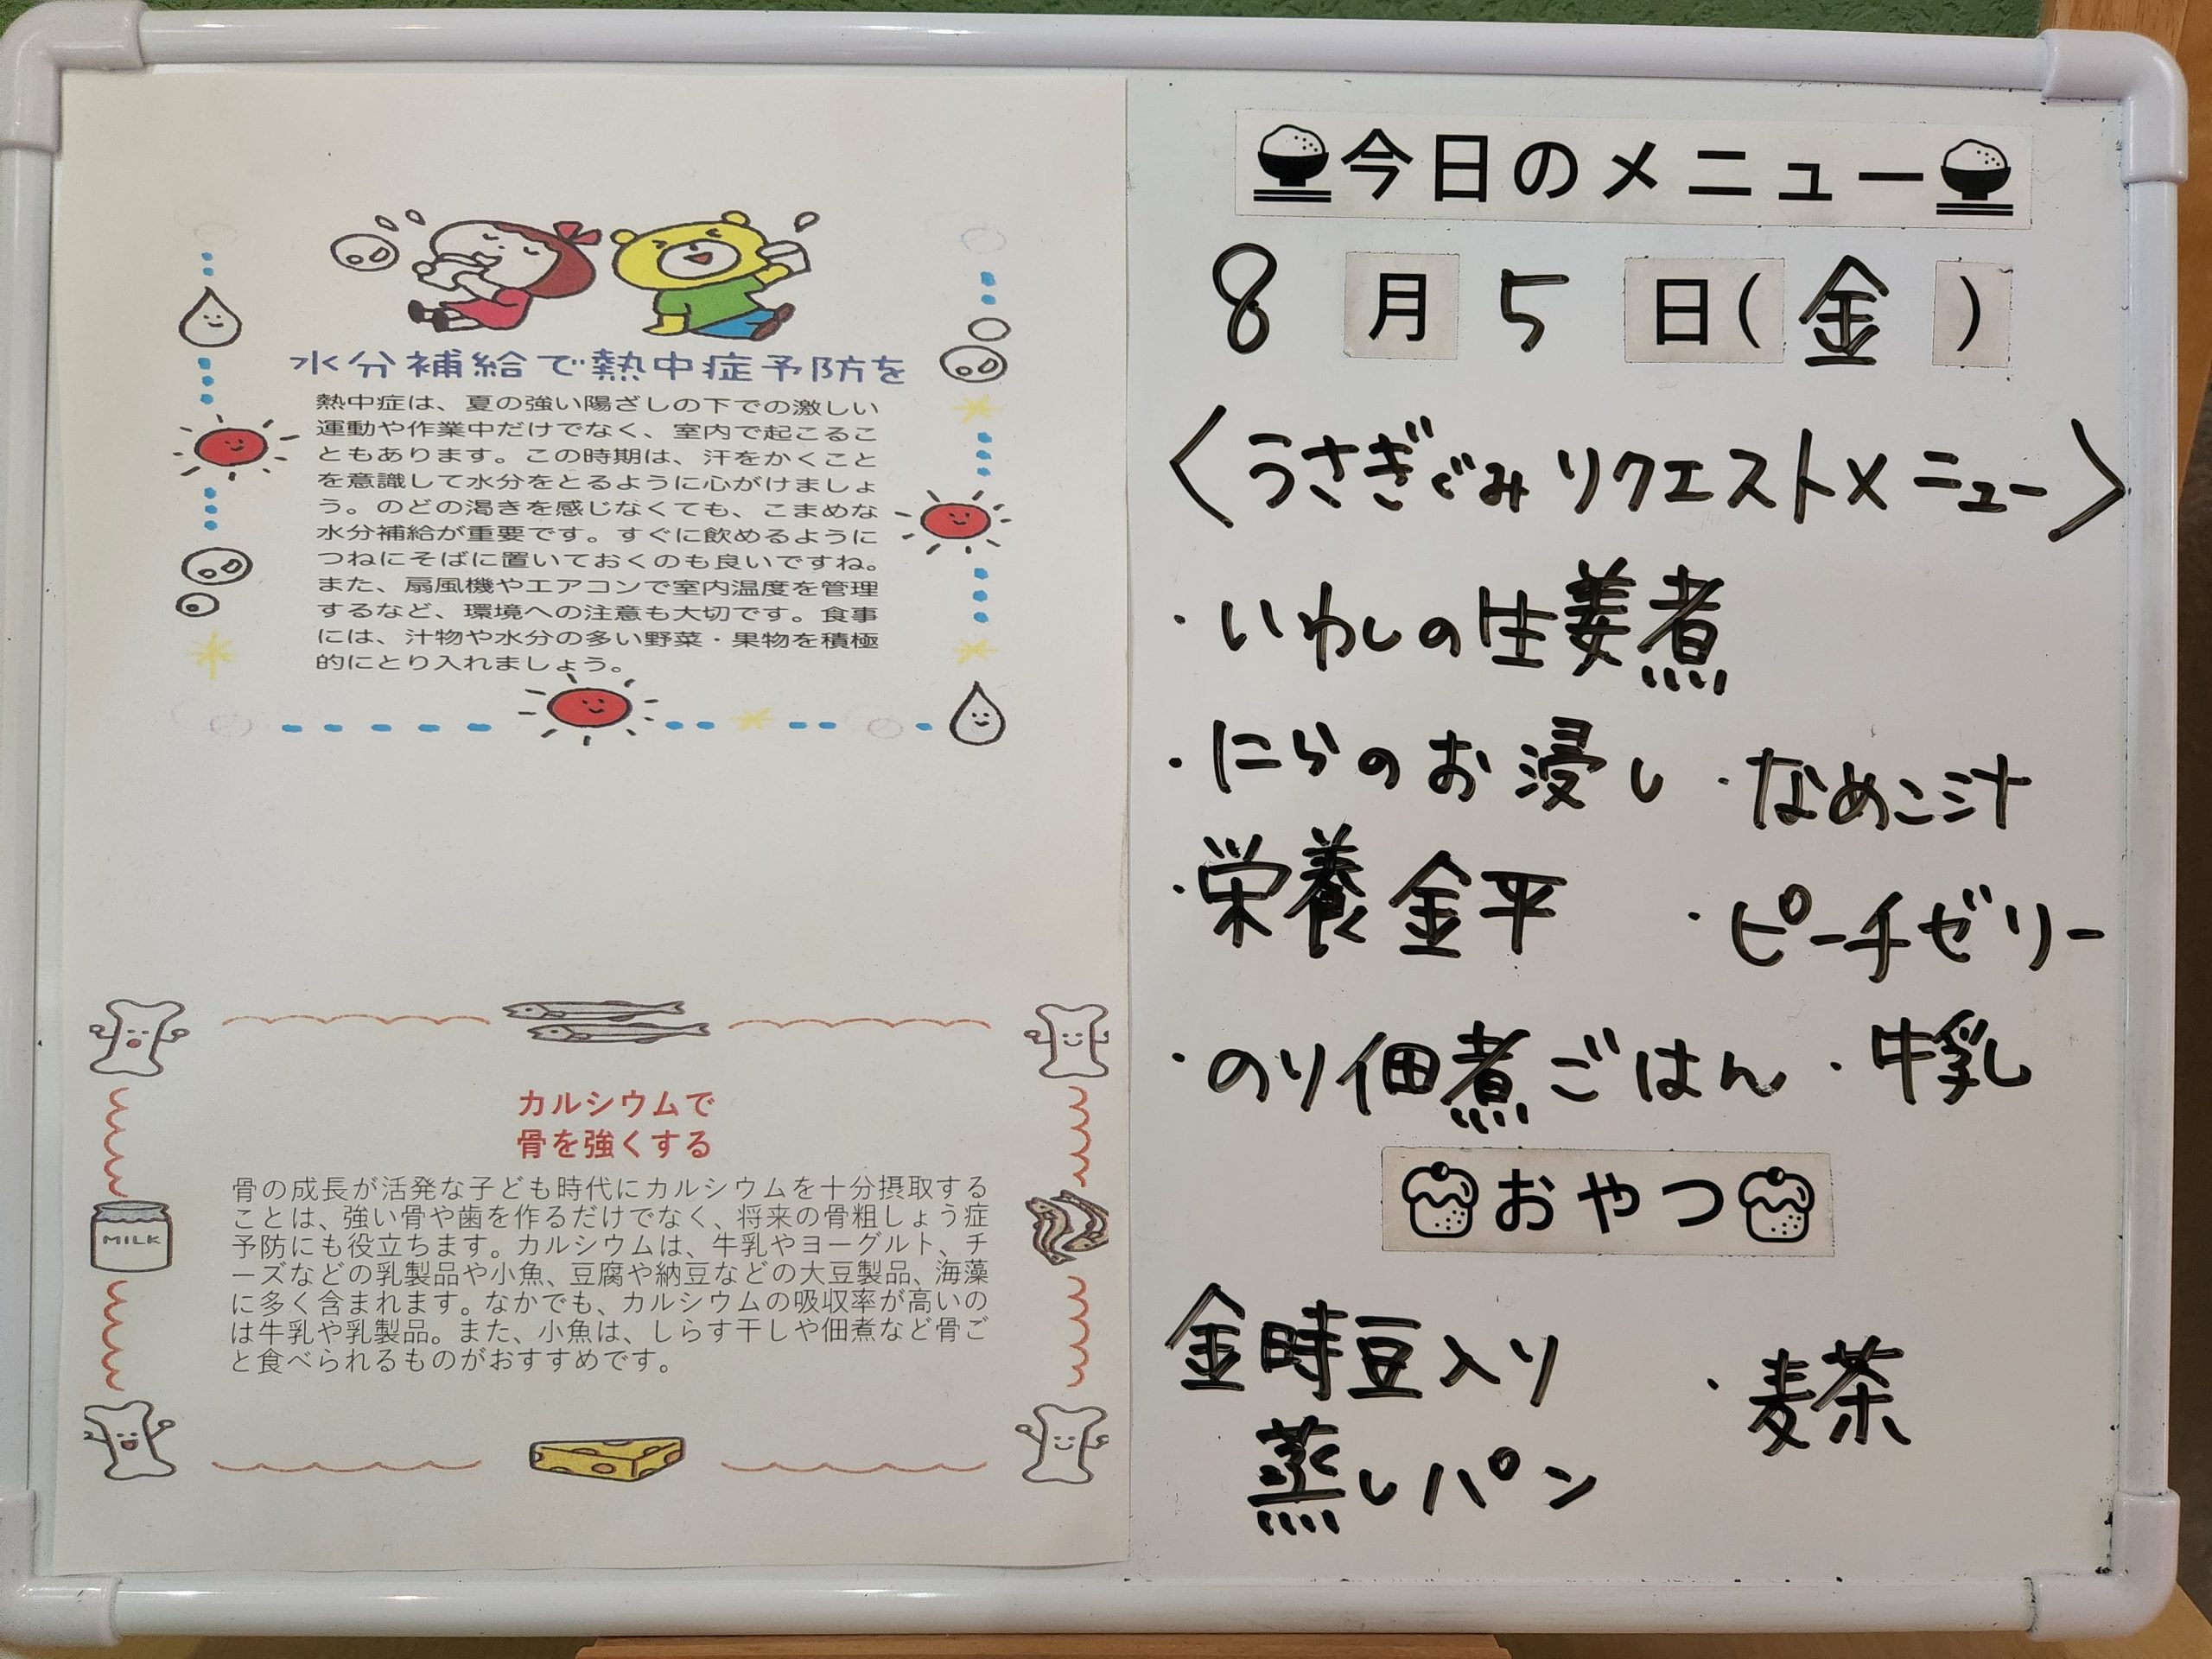 水分補給で熱中症予防を
熱中症は、夏の強い陽ざしの下での激しい
運動や作業中だけでなく、室内で起こるこ
ともあります。この時期は、汗をかくこと
を意識して水分をとるように心がけましょ
う。のどの渇きを感じなくても、こまめな
水分補給が重要です。すぐに飲めるように
つねにそばに置いておくのも良いですね。
また、扇風機やエアコンで室内温度を管理
するなど、環境への注意も大切です。食事
には、汁物や水分の多い野菜・果物を積極
的にとり入れましょう。
カルシウムで
骨を強くする
骨の成長が活発な子ども時代にカルシウムを十分摂取する
ことは、強い骨や歯を作るだけでなく、将来の骨粗しょう症
予防にも役立ちます。カルシウムは、牛乳やヨーグルト、チ
ーズなどの乳製品や小魚、豆腐や納豆などの大豆製品、海藻
に多く含まれます。なかでも、カルシウムの吸収率が高いの
は牛乳や乳製品。また、小魚は、しらす干しや佃煮など骨ご
と食べられるものがおすすめです。
MILK
今日のメニュー
8月5日(金)
〈うさぎぐみリクエストメニュー〉
・いわしの生姜煮
・にらのお浸し ・なめこ汁
・栄養金平 ・ピーチゼリー
・のり佃煮ごはん ・牛乳
おやつ
金時豆入り ・麦茶
蒸しパン